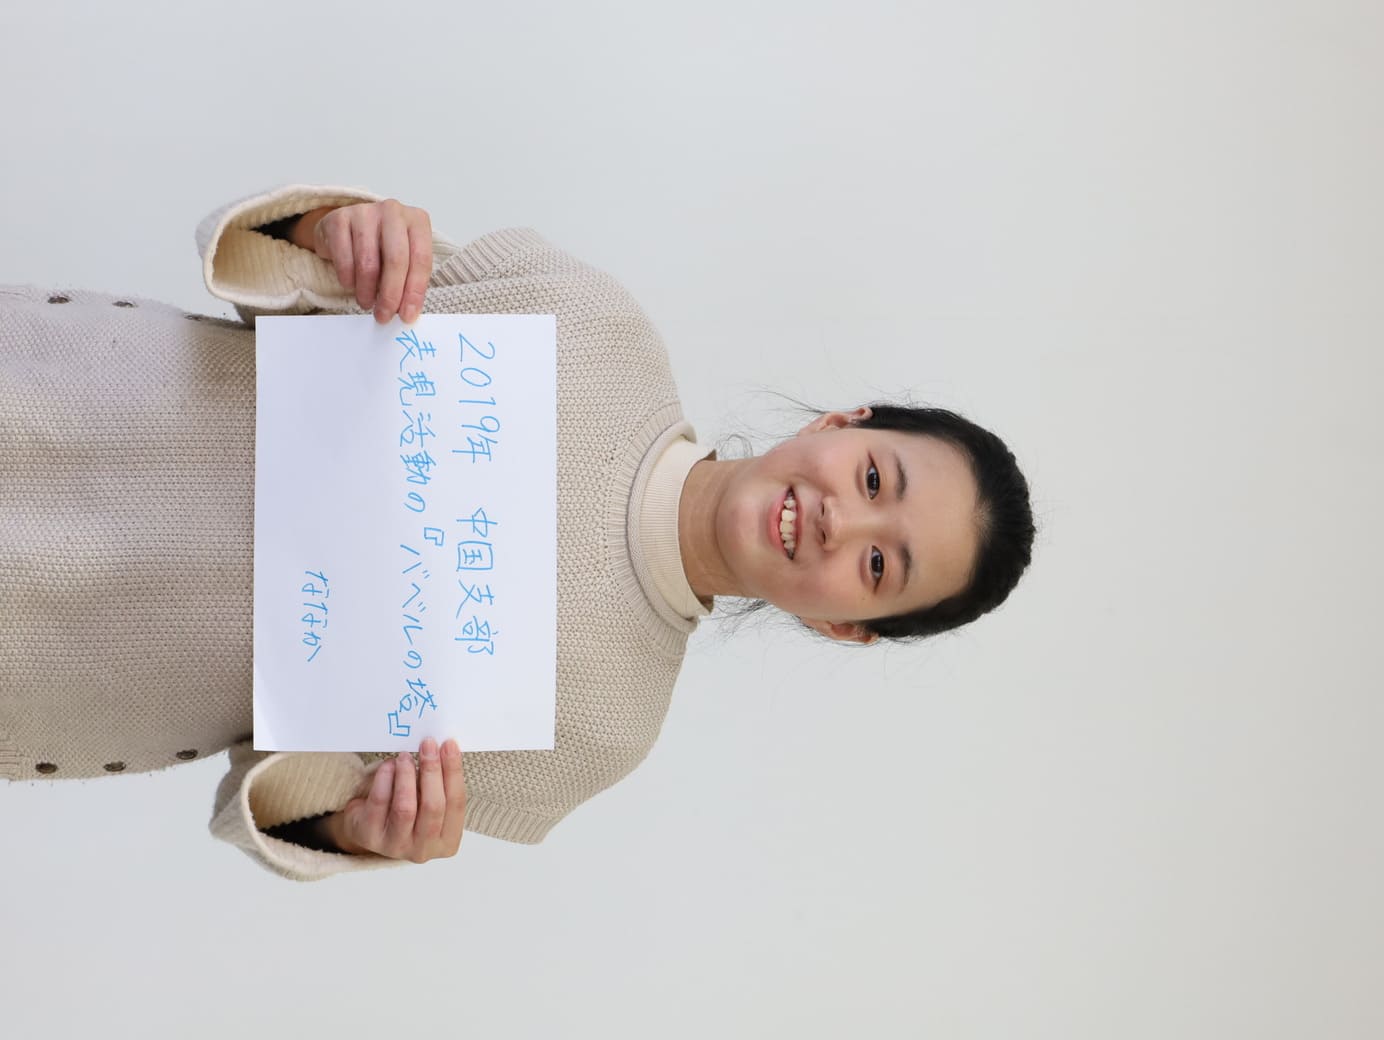 2019年 中国支部
表現活動の『バベルの塔』
ななか